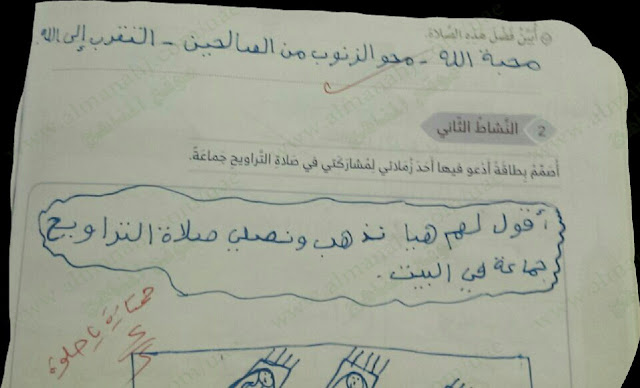 أبين فضل هذه الصلاة.
محبة الله - محو الزنوب من الصالحين - التقرب إلى الله.
2 النشاط الثاني
أصمم بطاقة أدعو فيها أحد زملائي لمشاركتي في صلاة التراويح جماعة.
أقول لهم هيا نذهب ونصلي صلاة التراويح
جماعة في البيت.
ممتازة يا حلوة